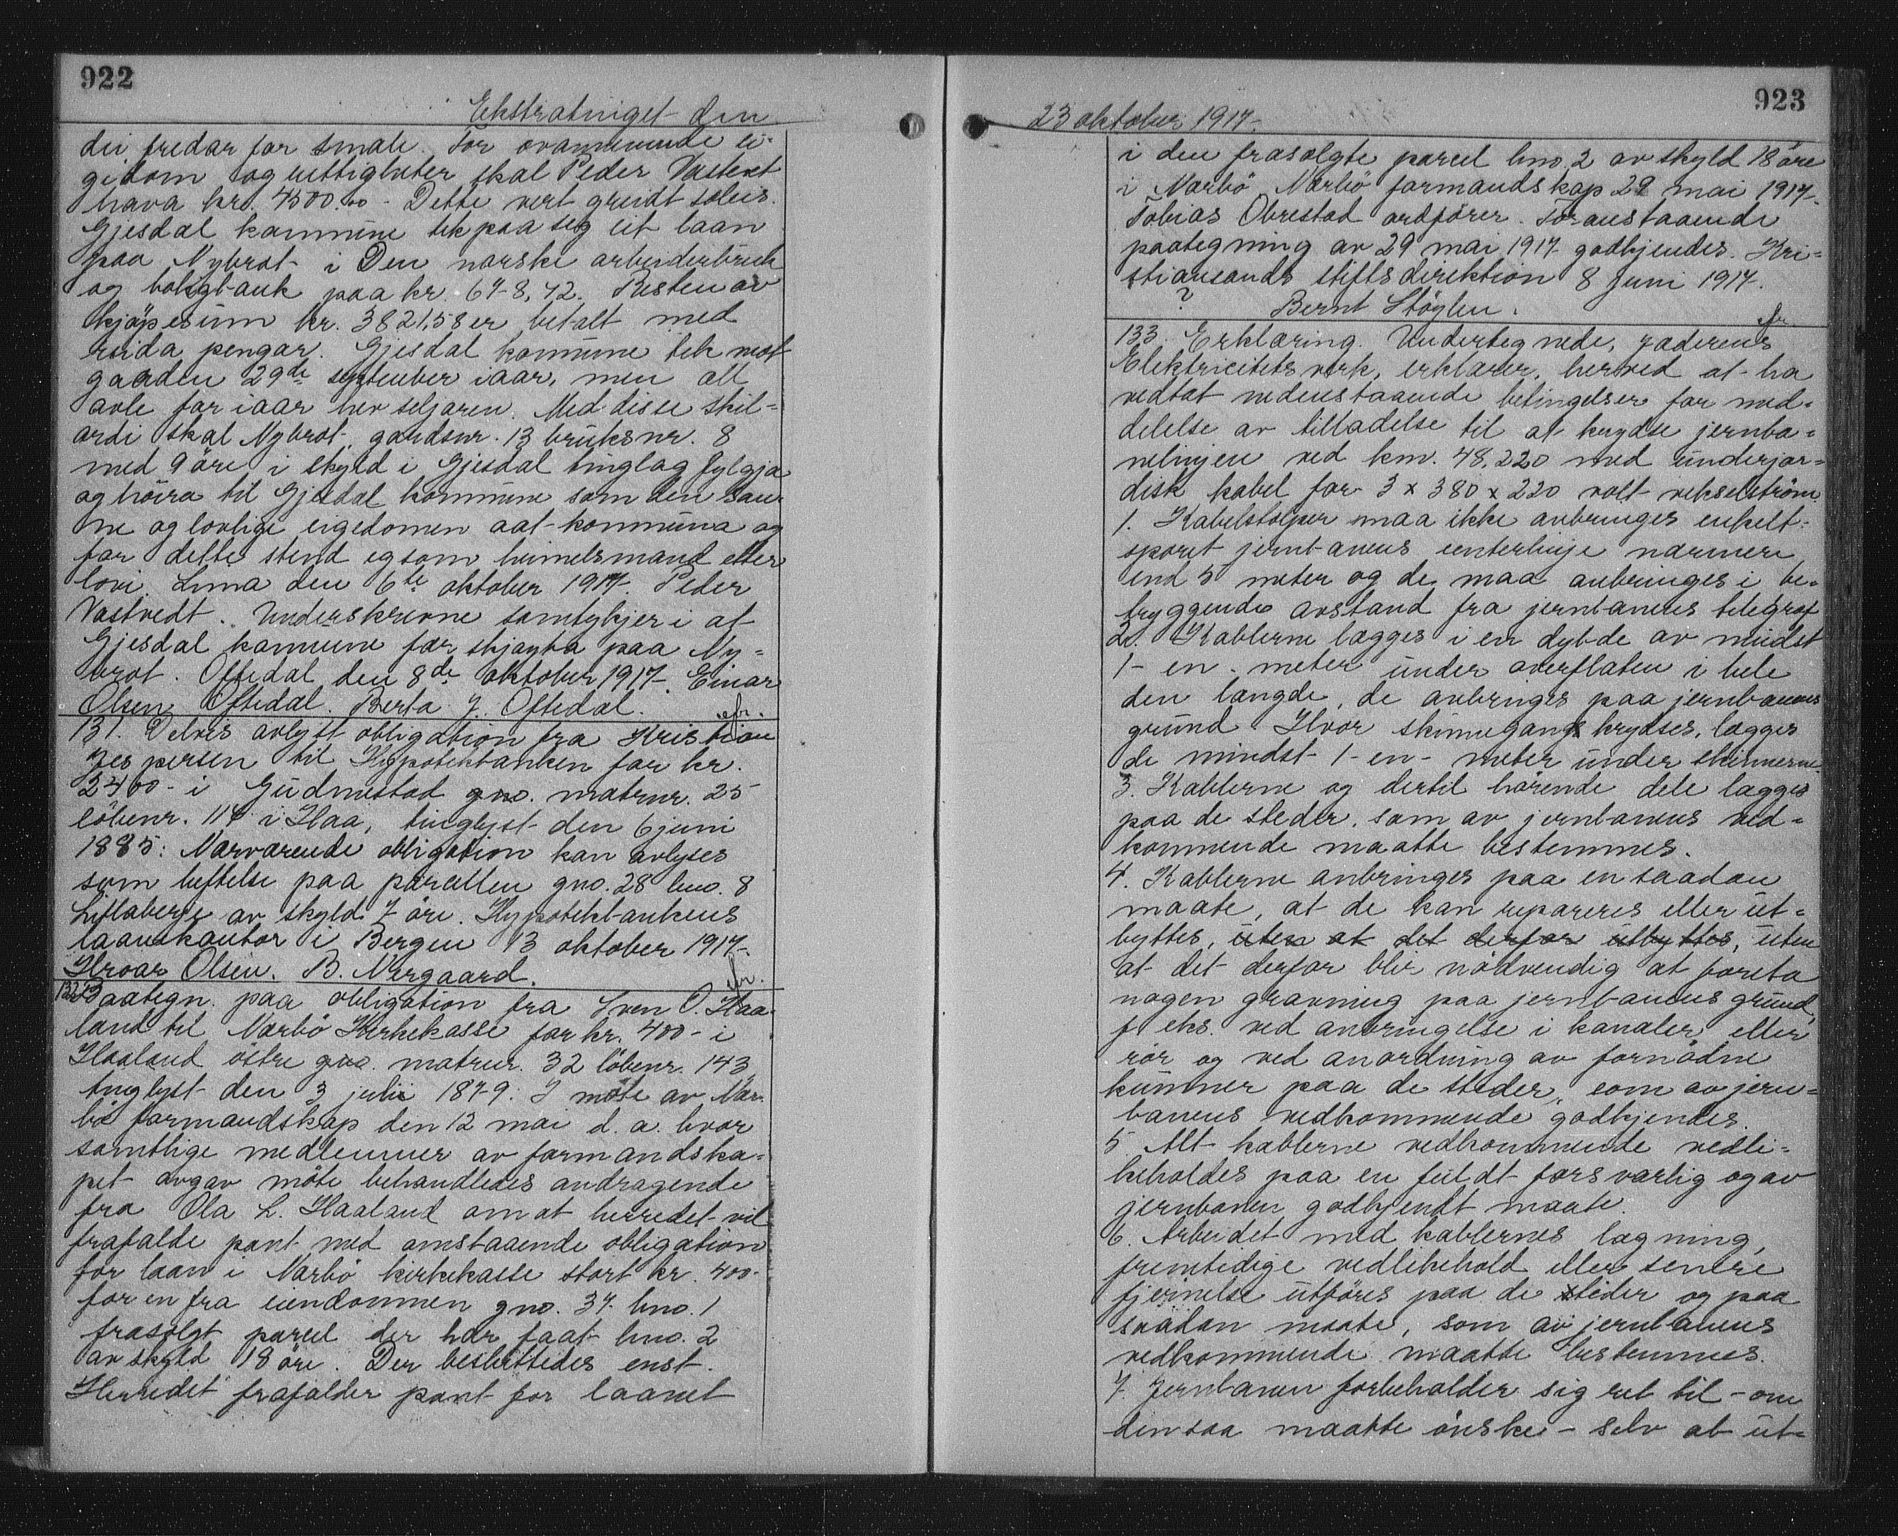 922
Ekstratinget den
dei fredar for smale. For ovannemnde ei-
gedom og rettigheter skal Peder Vastvet
hava kr. 4500.00 - Dette vert greidt soleis.
Gjesdal kommune tek paa seg eit laan
paa Nybrot i Den norske arbeiderbruk
og boligbank paa kr. 678,42. Resten av
kjöpesum kr. 3821,58 er betalt med
reida pengar. Gjesdal kommune tek mot
garden 29de september iaar, men all
avle for iaar hev seljaren. Med disse skil-
ordi skal Nybrot, gardsnr. 13 bruksnr. 8
med 9 öre i skyld i Gjesdal tinglag fylgja
og höira til Gjesdal kommune som den san-
ne og lovlige eigedomen aat kommuna og
for dette stend eg som heimelsmand etter
lovi. Lima den 6te oktober 1917. Peder
Vastvedt. Underskrevne samtykjer i at
Gjesdal kommune fær skjøyta paa Ny-
brot. Oftedal den 8de oktober 1917. Einar
Olsen Oftedal. Berta J. Oftedal. efr.
131. Delvis avlyst obligation fra Kristian
Jespersen til Hypotekbanken for kr.
2400 - i Gudmestad gno. matrnr. 25
löbenr. 114 i Haa, tinglyst den 6 juni
1885: Nærværende obligation kan avlyses
som heftelse paa parcellen gno. 28 bno. 8
Litlaberg av skyld 7 öre. Hypotekbankens
laanekontor i Bergen 13 oktober 1917.
Hroar Olsen. B. Nergaard. efr.
132. Paategn. paa obligation fra Sven O. Haa-
land til Nærbö Kirkekasse for kr. 400 - i
Haaland östre gno. matrnr. 32 löbenr. 143
tinglyst den 3 juli 1879: I möte av Nær-
bö formandskap den 12 mai d. a. hvor
samtlige medlemmer av formandska-
pet avgav möte behandledes andragende
fra Ola L. Haaland om at herredet vil
frafalde pant med omstaaende obligation
for laan i Nærbö kirkekasse stort kr. 400-
for en fra eiendommen gno. 37. bno. 1
frasolgt parcel der har faat bno. 2
av skyld 18 öre. Der besluttedes enst.
Herredet frafalder pant for laanet
923
23 oktober 1917.
i den frasolgte parcel bno. 2 av skyld 18 öre
i Nærbö Nærbö formandskap 29 mai 1917.
Tobias Obrestad ordförer. Foranstaaende
paategning av 29 mai 1917 godkjendes. Kri-
stiansands stiftsdirektion 8 Juni 1917.
? Bernt Stöylen. efr.
133. Erklæring. Undertegnede, Jæderens
Elektricitetsverk, erklærer, herved at ha
vedtat nedenstaaende betingelser for med-
delelse av tilladelse til at krydse jernba-
nelinjen ved km. 48,220 med underjor-
disk kabel for 3 x 380 x 220 volt vekselström
1. Kabelstolper maa ikke anbringes enkelt-
sporet jernbanens centerlinje nærmere
end 5 meter og de maa anbringes i be-
tryggende avstand fra jernbanens telegraf
2. Kablerne lægges i en dybde av mindst
1 - en - meter under overflaten i hele
den længde, de anbringes paa jernbanens
grund. Hvor skinnegangs krydses, lægges
de mindst 1 - en - meter under skinnerne
3. Kablerne og dertil hörende dele lægges
paa de steder, som av jernbanens ved-
kommende maatte bestemmes.
4. Kablerne anbringes paa en saadan
maate, at de kan repareres eller ut-
byttes, uten at det derfor utbyttes, uten
at det derfor blir nödvendig at foreta
nogen gravning paa jernbanens grund,
f. eks. ved anbringelse i kanaler, eller
rör og ved anordning av fornödne
kummer paa de steder, som av jern-
banens vedkommende godkjendes.
5 Alt kablerne vedkommende vedli-
keholdes paa en fuldt forsvarlig og av
jernbanen godkjendt maate.
6. Arbeidet med kablernes lægning,
fremtidige vedlikehold eller senere
fjernelse utföres paa de steder og paa
saadan maate, som av jernbanens
vedkommende maatte bestemmes.
7. Jernbanen forbeholder sig ret til - om
den saa maatte önske - selv at ut-